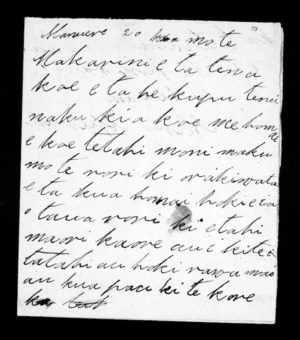 Manuere 20 mo te
Makarini e ta tena
koe e ta he kupu tenei
naku ki a koe me homai
e koe tetahi moni maku
mo te rori ki rakiwata
e ta kua homai hoki e ia
o taua rori ki etahi
maori kaore au e kite
tatahi au hoki rawa mai
au kua pau ki te kore